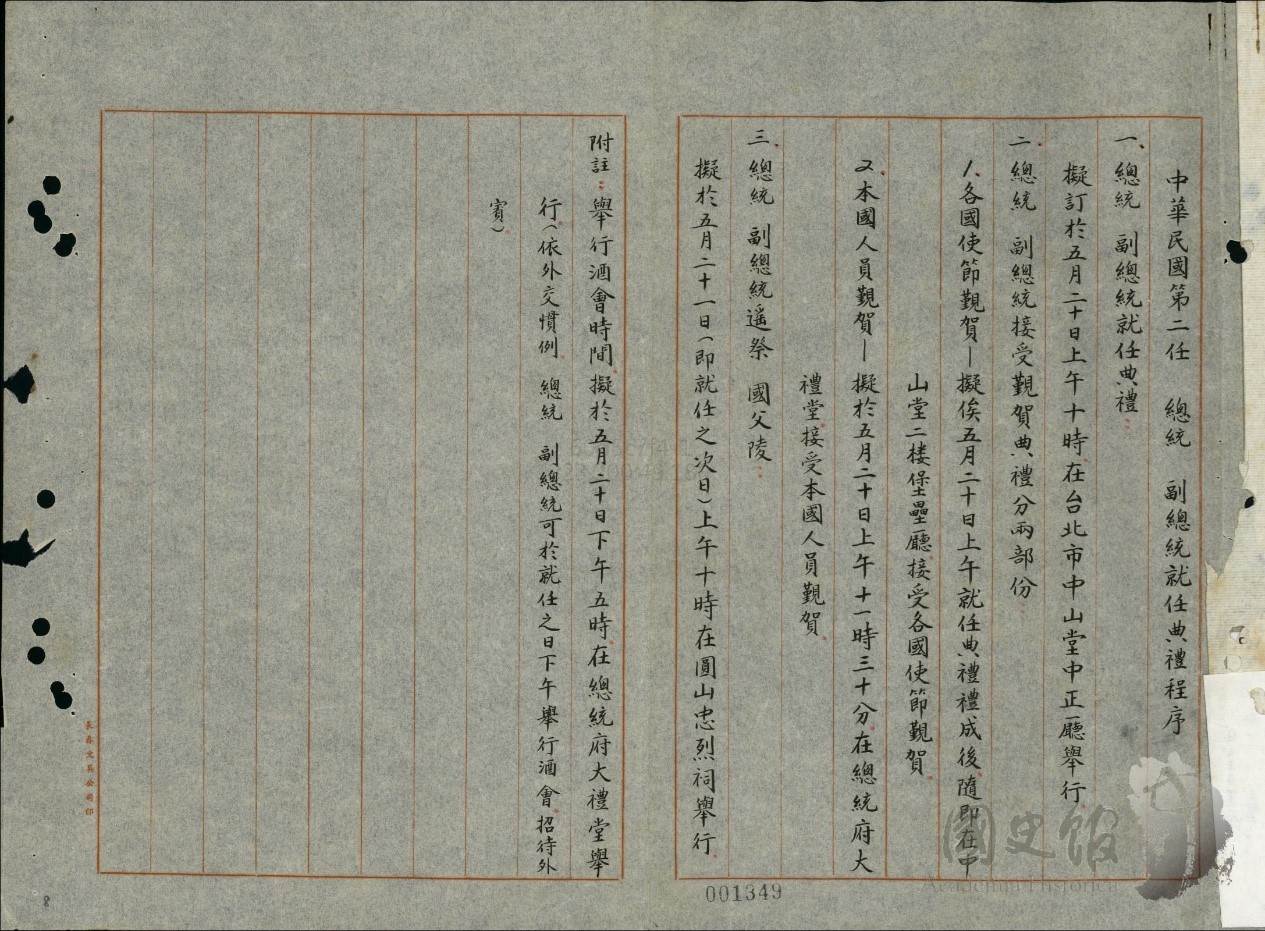 中華民國第二任　總統　副總統就任典禮程序
一、總統　副總統就任典禮：
擬訂於五月二十日上午十時，在台北市中山堂中正廳舉行。
二、總統　副總統接受覲賀典禮分兩部份：
1.各國使節覲賀—擬俟五月二十日上午就任典禮禮成後，隨即在中
山堂二楼堡壘廳，接受各國使節覲賀。
2.本國人員覲賀—擬於五月二十日上午十一時三十分，在總統府大
禮堂，接受本國人員覲賀。
三、總統　副總統遥祭　國父陵：
擬於五月二十一日（即就任之次日）上午十時在圓山忠烈祠舉行。
附註：舉行酒會時間，擬於五月二十日下午五時，在總統府大禮堂舉
行。（依外交慣例，總統　副總統可於就任之日下午舉行酒會，招待外
賓）。
長春文具公司印
001349
8
國史館
Academia Historica